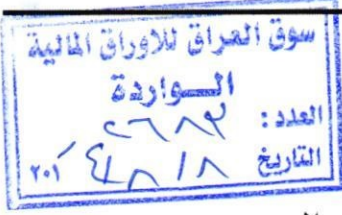 سوق العراق للاوراق المالية
الـــواردة
العدد :
التاريخ ٨ / ٨ / ٢٠١٤